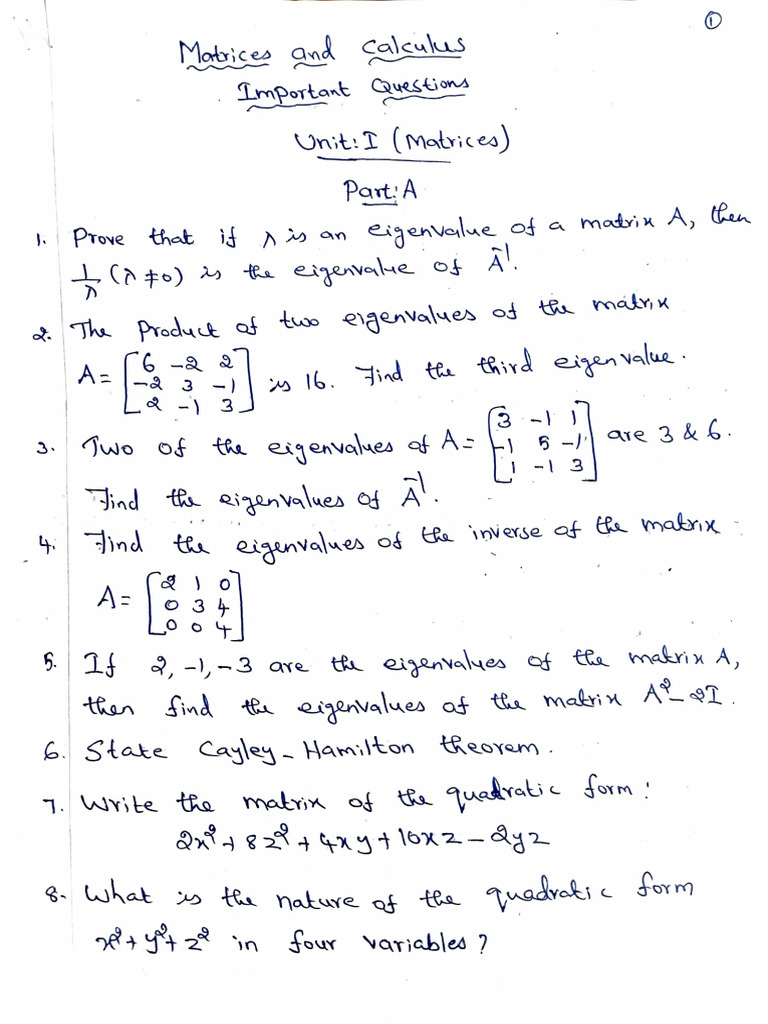 ①
Matrices and Calculus
Important Questions
Unit: I (Matrices)
Part: A
1. Prove that if λ is an eigenvalue of a matrix A, then
1/λ (λ ≠ 0) is the eigenvalue of A⁻¹.
2. The Product of two eigenvalues of the matrix
A = [6 -2 2; -2 3 -1; 2 -1 3] is 16. Find the third eigenvalue.
3. Two of the eigenvalues of A = [3 -1 1; -1 5 -1; 1 -1 3] are 3 & 6.
Find the eigenvalues of A⁻¹.
4. Find the eigenvalues of the inverse of the matrix
A = [2 1 0; 0 3 4; 0 0 4]
5. If 2, -1, -3 are the eigenvalues of the matrix A,
then find the eigenvalues of the matrix A² - 2I.
6. State Cayley-Hamilton theorem.
7. Write the matrix of the quadratic form:
2x² + 8z² + 4xy + 10xz - 2yz
8. What is the nature of the quadratic form
x² + y² + z² in four variables?